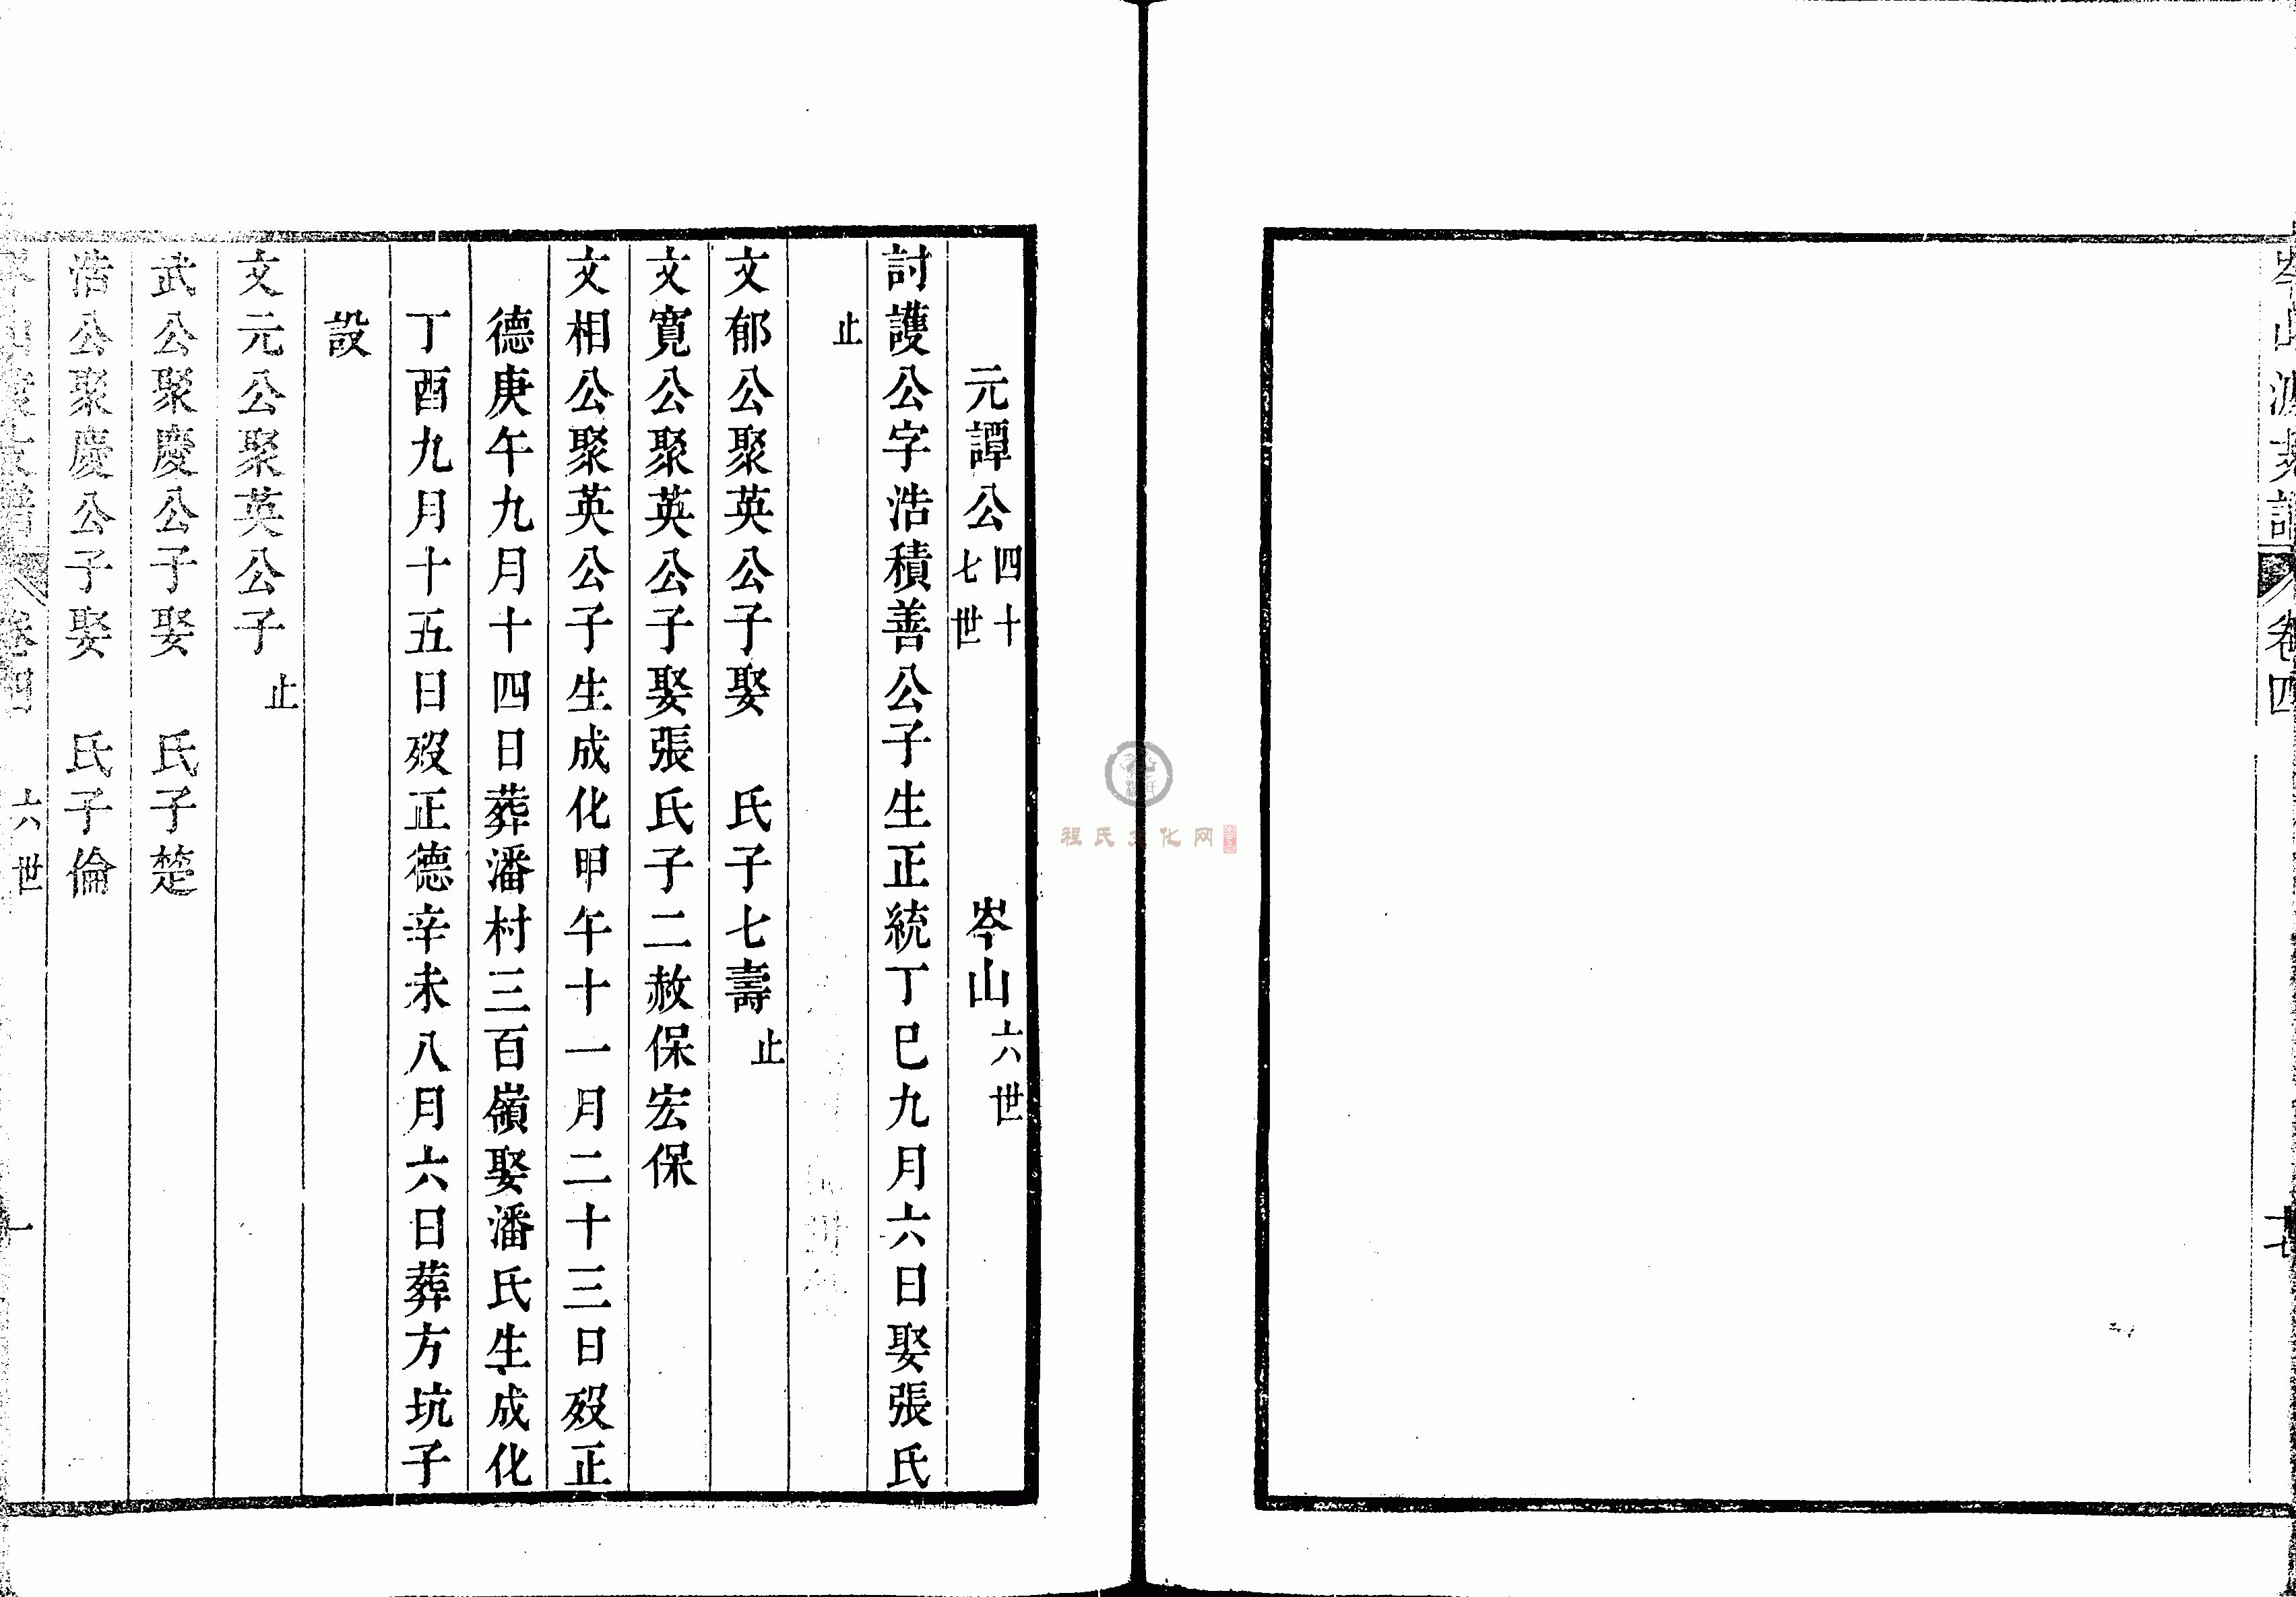 岑山渡支譜 卷四 十七
元譚公四十七世 岑山六世
討護公字浩積善公子生正統丁巳九月六日娶張氏
止
文郁公聚英公子娶 氏子七壽止
文寬公聚英公子娶張氏子二赦保宏保
文相公聚英公子生成化甲午十一月二十三日歿正
德庚午九月十四日葬潘村三百嶺娶潘氏生成化
丁酉九月十五日歿正德辛未八月六日葬方坑子
設
文元公聚英公子止
武公聚慶公子娶 氏子楚
浩公聚慶公子娶 氏子倫
岑山渡支譜 卷四 六世 一
程氏文化网